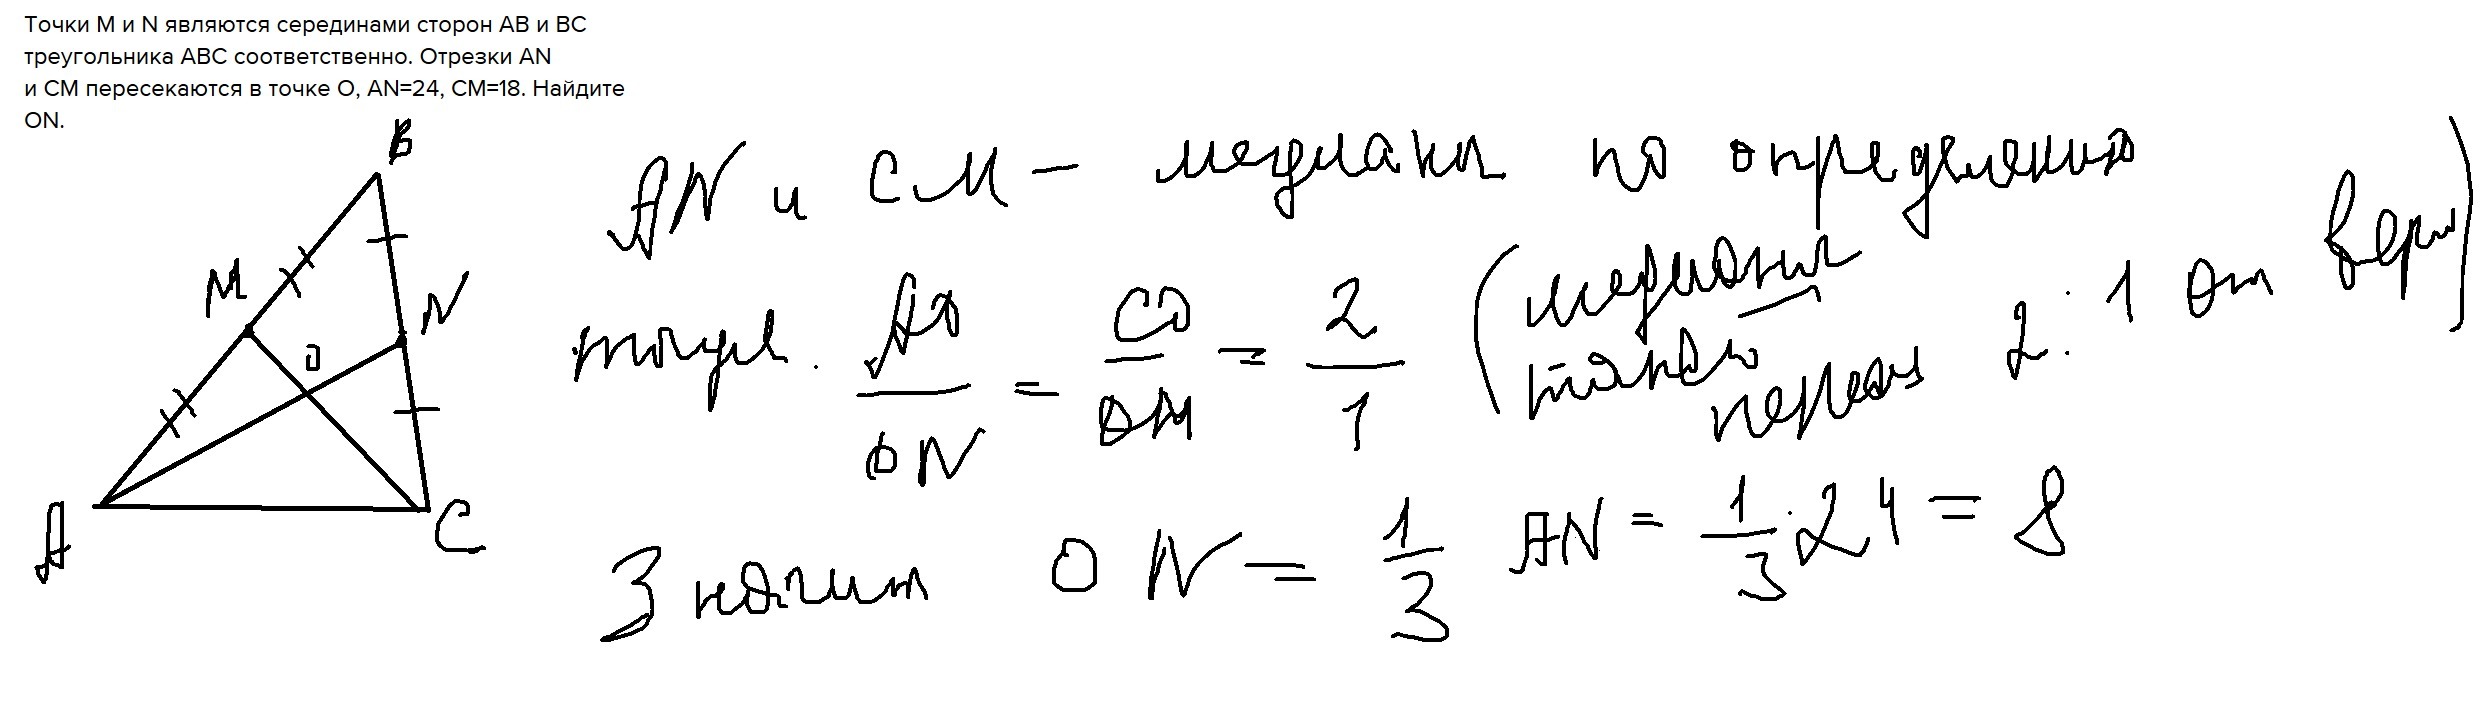 Точки М и N являются серединами сторон АВ и ВС
треугольника АВС соответственно. Отрезки AN
и СМ пересекаются в точке О, AN=24, СМ=18. Найдите
ON.
B
M
N
O
A
C
AN и CM — медианы по определению
AO/ON = CO/OM = 2/1 (медианы
2:1 от верш)
Значит ON = 1/3 AN = 1/3 · 24 = 8